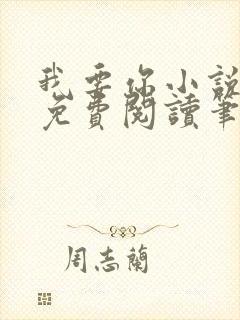 我要你小說
免費閱讀筆
周志蘭